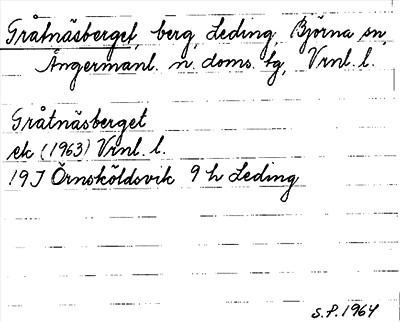 Gråtnäsberget, berg, Leding, Björna sn,
Ångermanl. n. doms. tg, Vrnl. l.
Gråtnäsberget
ek (1963) Vrnl. l.
19J Örnsköldsvik 9 h Leding
S.P. 1964